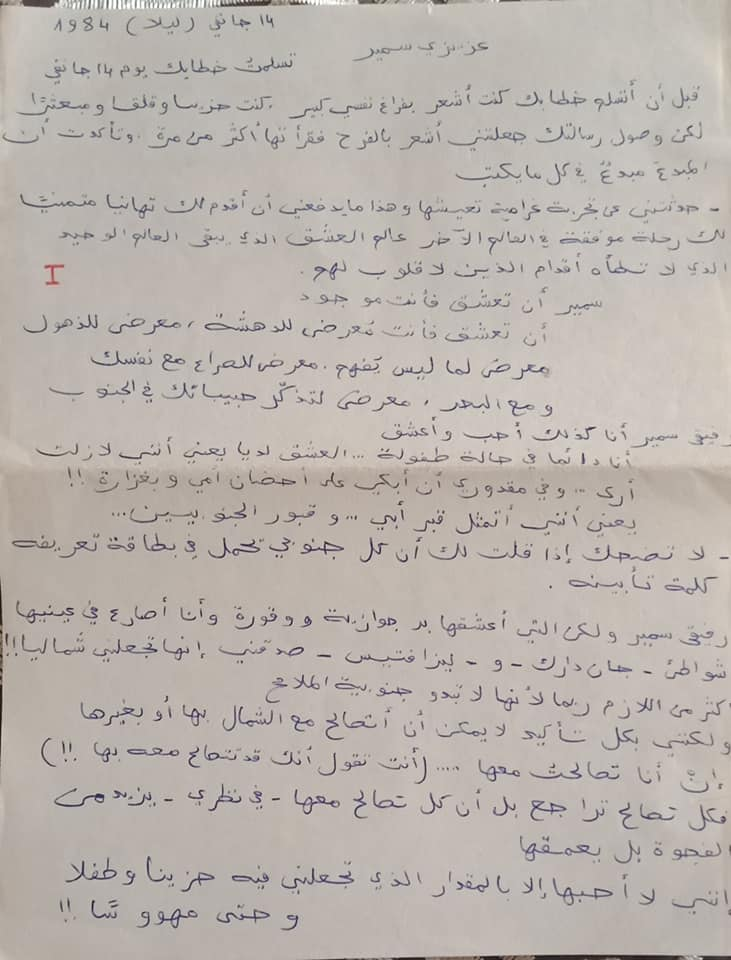 14 جانفي (ليلا) 1984
عزيزي سمير
تسلمت خطابك يوم 14 جانفي
قبل أن أتسلم خطابك كنت أشعر بفراغ نفسي كبير. كنت حزينا وقلقا ومبعثرًا
لكن وصول رسالتك جعلتني أشعر بالفرح فقرأتها أكثر من مرة. وتأكدت أن
المبدعَ مبدعٌ في كل ما يكتب
- حدثتني عن تجربة غرامية تعيشها وهذا ما يدفعني أن أقدم لك تهانينا متمنيًا
لك رحلة موفقة في العالم الآخر عالم العشق الذي يبقى العالم الوحيد
الذي لا تطأه أقدام الذين لا قلوب لهم.
I
سمير أن تعشق فأنت موجود
أن تعشق فأنت مُعرض للدهشة، معرض للذهول
معرض لما ليس يُفهم. معرض للصراع مع نفسك
ومع البحر، معرض لتذكّر حبيباتك في الجنوب
رفيقي سمير أنا كذلك أحب وأعشق
أنا دائما في حالة طفولة... العشق لديا يعني أنني لازلت
أرى... وفي مقدوري أن أبكي على أحضان أمي وبغزارة!!
يعني أنني أتمثل قبر أبي... و قبور الجنوبيين...
- لا تضحك إذا قلت لك أن كل جنوبي يحمل في بطاقة تعريفه
كلمة تأبينه.
رفيقي سمير ولكن التي أعشقها وقورة وأنا أصارع في عينيها
شواطئ - جان دارك - و - ليزا فتيس - صدقني إنها تجعلني شماليا!!
أكثر من اللازم ربما لأنها لا تبدو جنوبية الملامح
ولكنني بكل تأكيد لا يمكن أن أتصالح مع الشمال بها أو بغيرها
إنْ أنا تصالحتُ معها.... (أنت تقول أنك قد تتصالح معه بها!!)
فكل تصالح تراجع بل أن كل تصالح معها - في نظري - يزيد من
الفجوة بل يعمقها
إنني لا أحبها إلا بالمقدار الذي تجعلني فيه حزينا وطفلا
وحتى مهووسًا!!